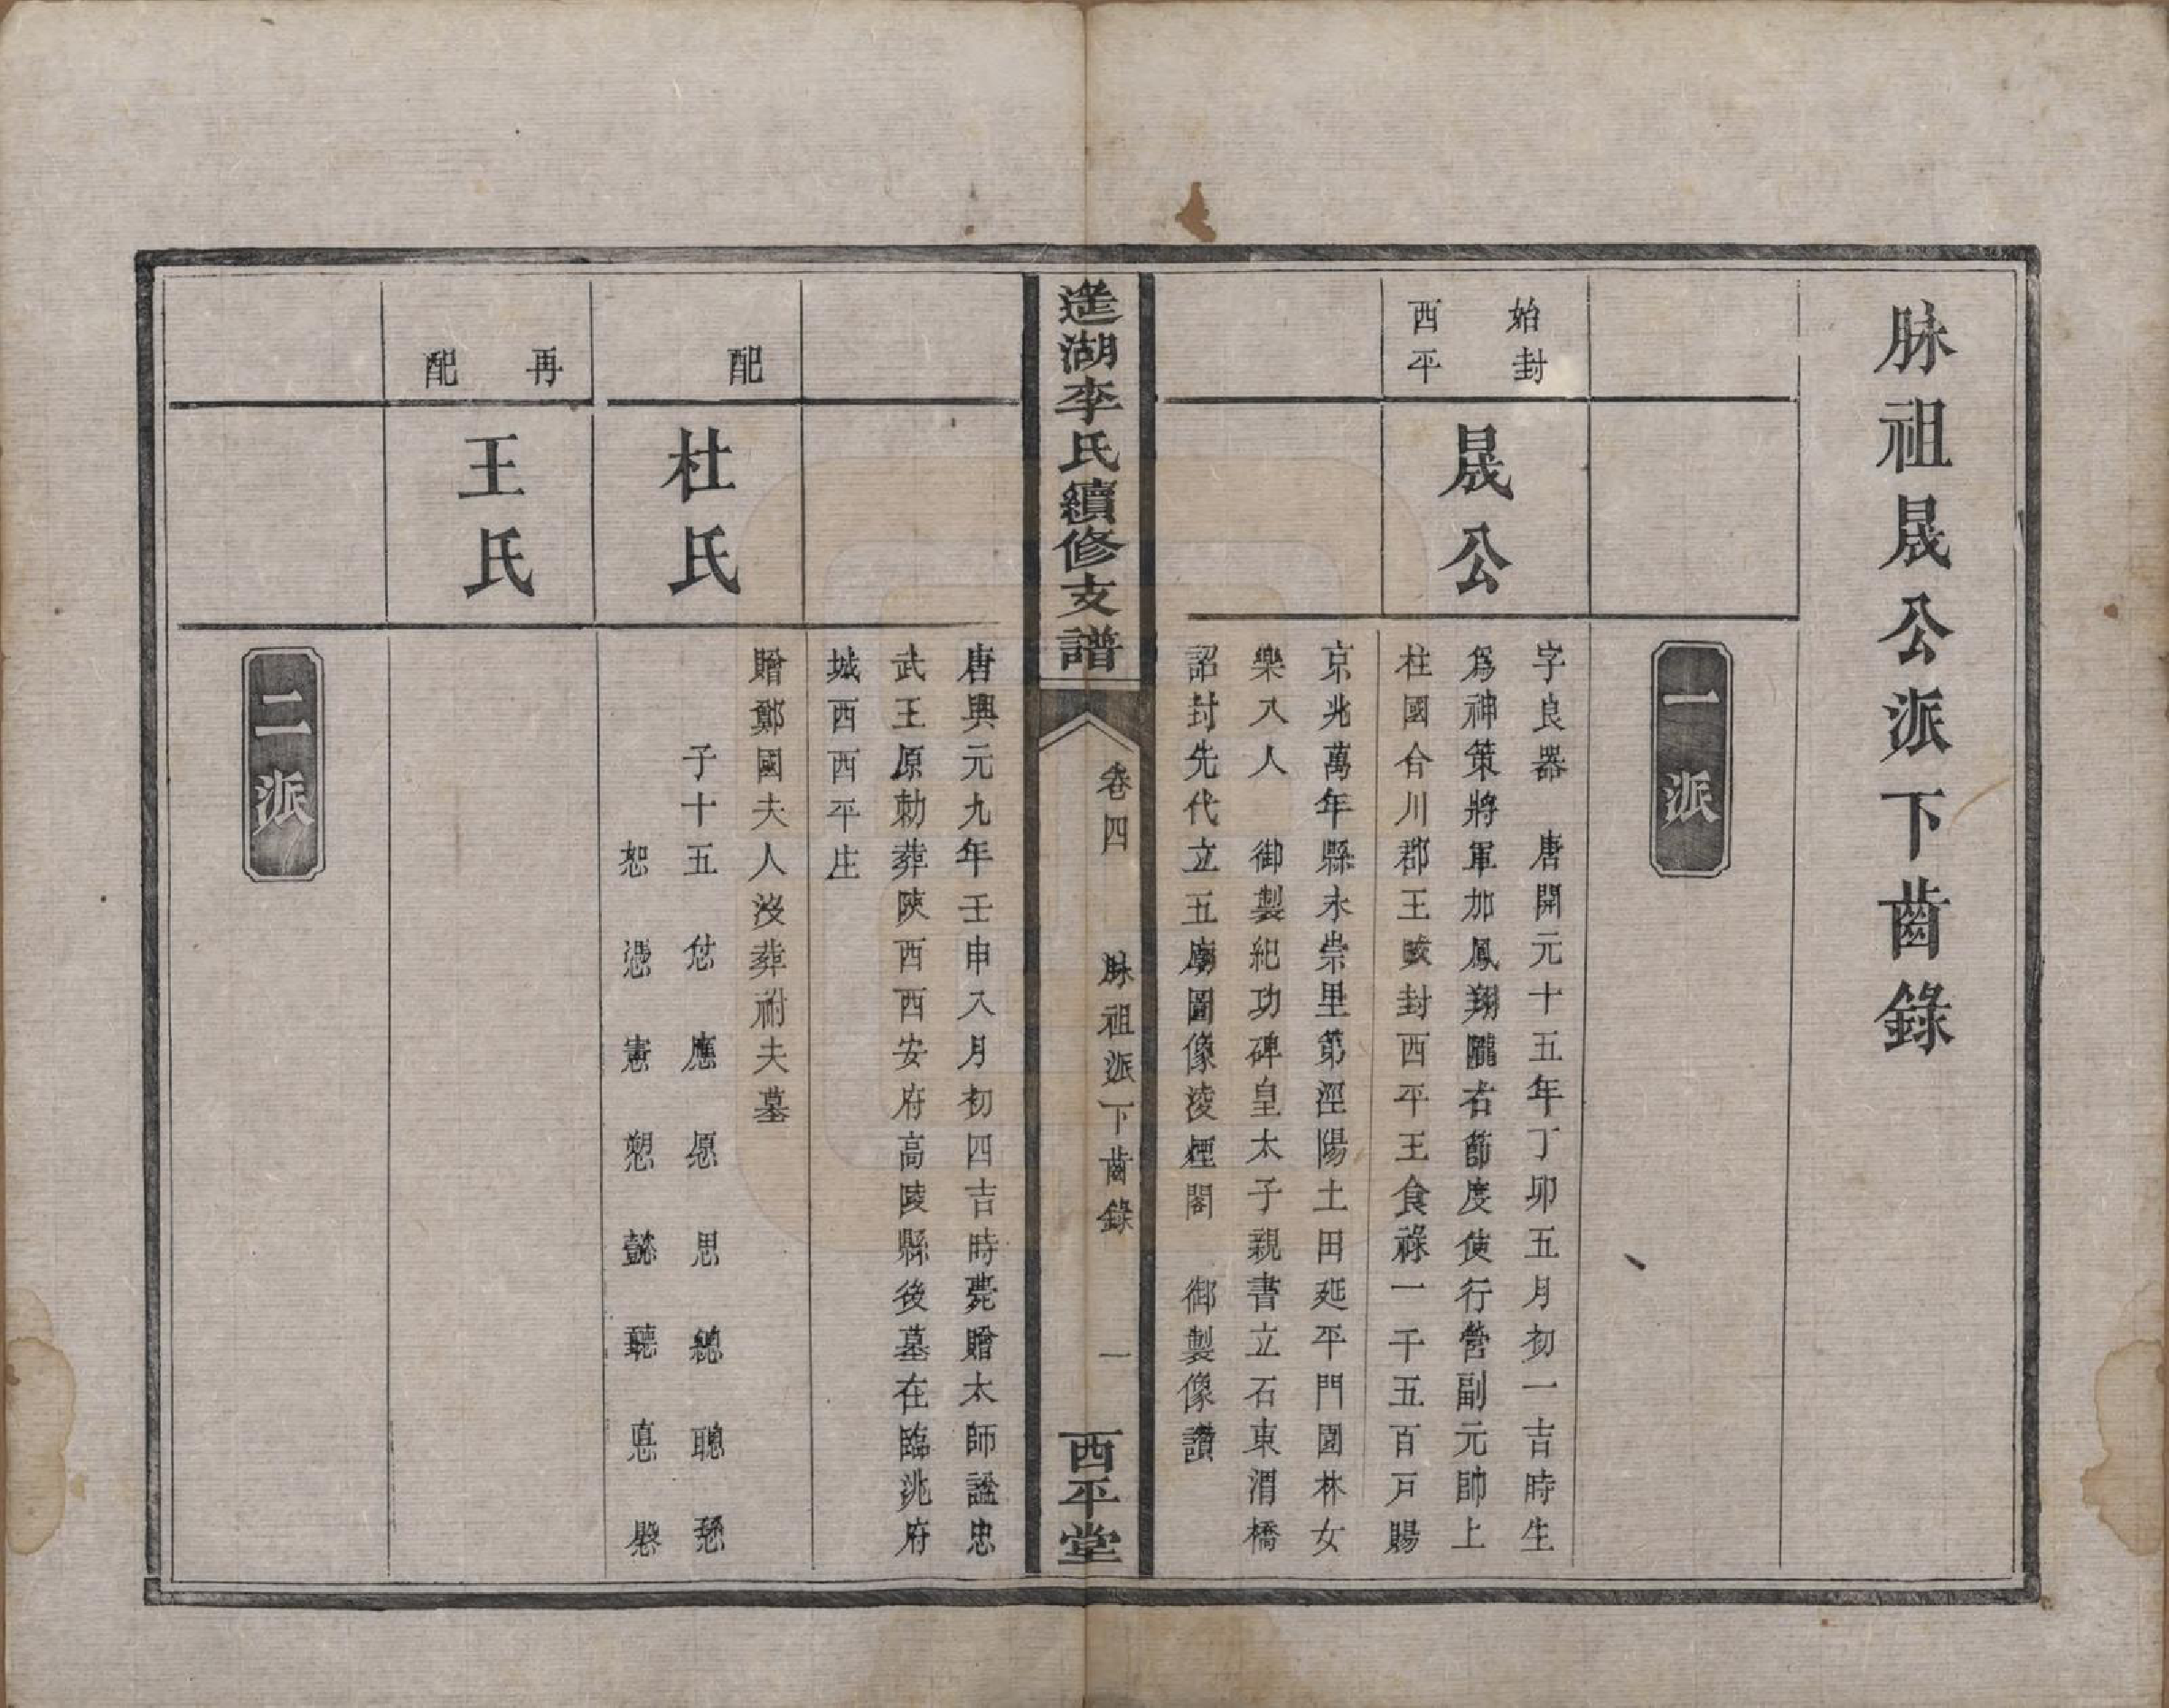 脉祖晟公派下齒錄
一派
始封
西平
晟公
字良器　唐開元十五年丁卯五月初一吉時生
爲神策將軍加鳳翔隴右節度使行營副元帥上
柱國合川郡王晈封西平王食祿一千五百戸賜
京兆萬年縣永崇里第涇陽土田延平門園林女
樂八人　御製紀功碑皇太子親書立石東渭橋
詔封先代立五廟圖像淩煙閣　御製像讚
湖李氏續修支譜
卷四　脉祖派下齒錄　一
西平堂
唐興元九年壬申八月初四吉時薨贈太師諡忠
武王原勅葬陝西西安府高陵縣後墓在臨洮府
城西西平庄
配
杜氏
贈鄭國夫人沒葬祔夫墓
子十五　　應愿思總聰
恕憑憲愬懿聽惎慇
再
配
王氏
二派